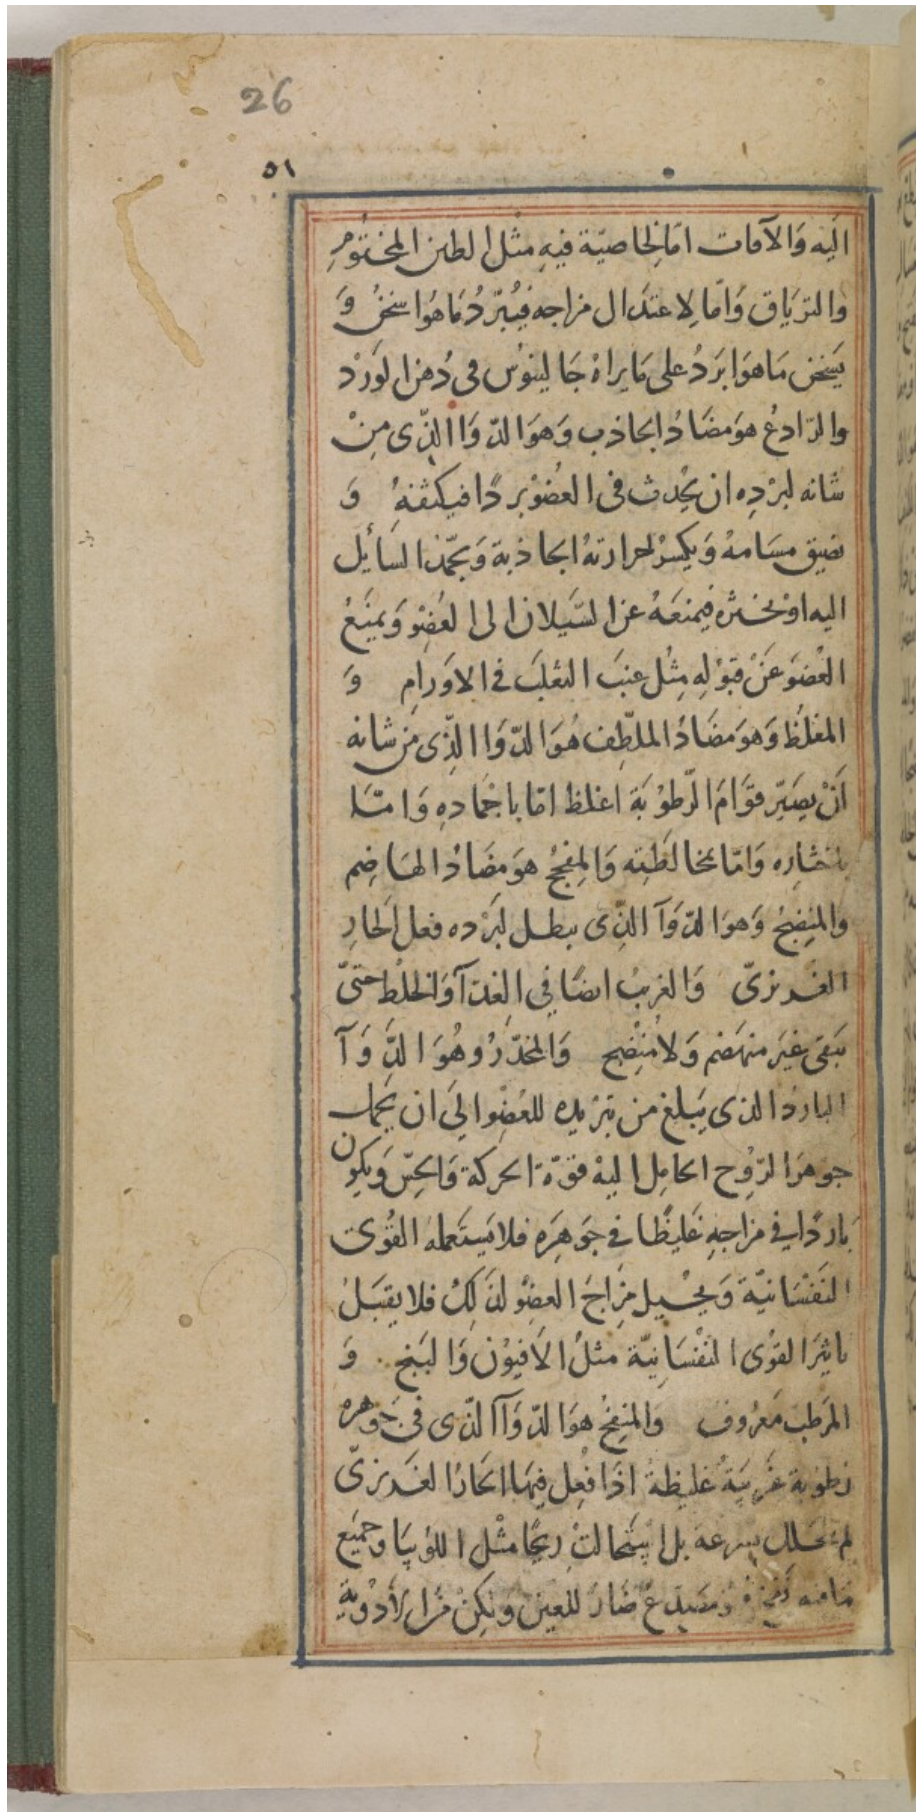 26
٥١
اليه وَالآفات امّا لِخاصيّة فيهِ مثل الطين المختوُمِ
والترَياق وَامّا لاِعتدَال مزاجه فيُبرّدُ مَاهوُا سخنُ وَ
يَسخن مَا هوَا برَدُ على مَا يراهُ جَالينوُس فى دُهن الوَرْد
والرّادعُ هوَ مضَادُ الجاذب وَهوَ الدّوَا الذّى مِنْ
شانه لبرْدِه ان يحُدث فى العضُوْ بردًا فيكثفهُ وَ
يضيق مسَامهُ وَيكسرْ حرارتهُ الجاذبة وَيجمّد السَائِل
اليه اوْ يخثره فيمنعَهُ عن السَّيلان الى العُضِوْ وَيمنَعُ
العُضوَ عَنْ قبوُلِهِ مِثْل عنبَ الثعلَبَ فى الاوَرام وَ
المغلّظ وَهوَ مضَادُ الملطّف هُوَ الدّوَا الذِّى من شانه
اَنْ يصَيّر قوَّامَ الرّطوُبَة اغلظ امّا باجمَادِهِ وَامّا
باخثارِه وَامّا بمخالطَتِه وَالمفجّجُ هوَ مضَادُ الهَاضِم
وَالمُنِضِجُ وَهوَ الدّوَآ الذِّى يبطل لبَرْده فعل الَحارِ
الغَريزىّ وَالغريبُ ايضًا في الغذآ وَالخلطُ حَتىّ
يَبقى غيَر منهَضم وَلا مُنِضج وَالمخدّرُ وهُوَ الدَّوَآ
البارِدُ الذى يَبلغ من تبرْيده للعُضِوا لىَ ان يحَيل
جوهَرَ الرّوُح الحامِل اليهْ قوّة الحركة وَالحِسّ وَيكون
بَاردًا في مزاجهِ غَليظًا في جَوهَرِه فلا يَستَعمله القُوى
النَفسْانيّة وَيحْيل مِزَاجَ العضِوُ لذَلِكَ فلا يقبَلُ
تاثيرَ القوُى النفَسْاَنيّة مثلُ الاَفيوُن وَالبَنج وَ
المرَطب مَعرُوف وَالمنفِخُ هوَ الدّوَآ الذّى فى جَوهره
رَطوُبة غَريبَةُ غليظةُ اذَا فعِل فيهَا الحَارُ الغَريزىّ
لم يتحَلل بسرعة بل اسِتَحالتْ ريحًا مثْل اللوُبيَا وَجميَع
مَا فيه نفخ فهوَ مصَدّعُ ضَارُ للعين وَلكِنْ مْن الادَوْيةِ